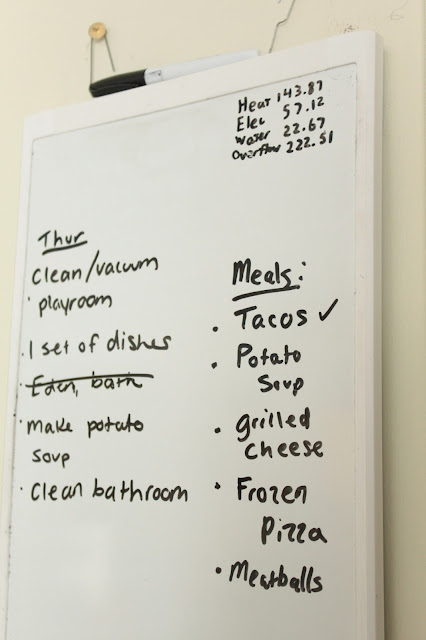 Heat 143.87
Elec 57.12
Water 22.67
Overflow 222.51
Thur
Clean/vacuum
· playroom
· 1 set of dishes
· Eden, bath
· Make potato
soup
· Clean bathroom
Meals:
· Tacos ✓
· Potato
Soup
· grilled
cheese
· Frozen
Pizza
· Meatballs